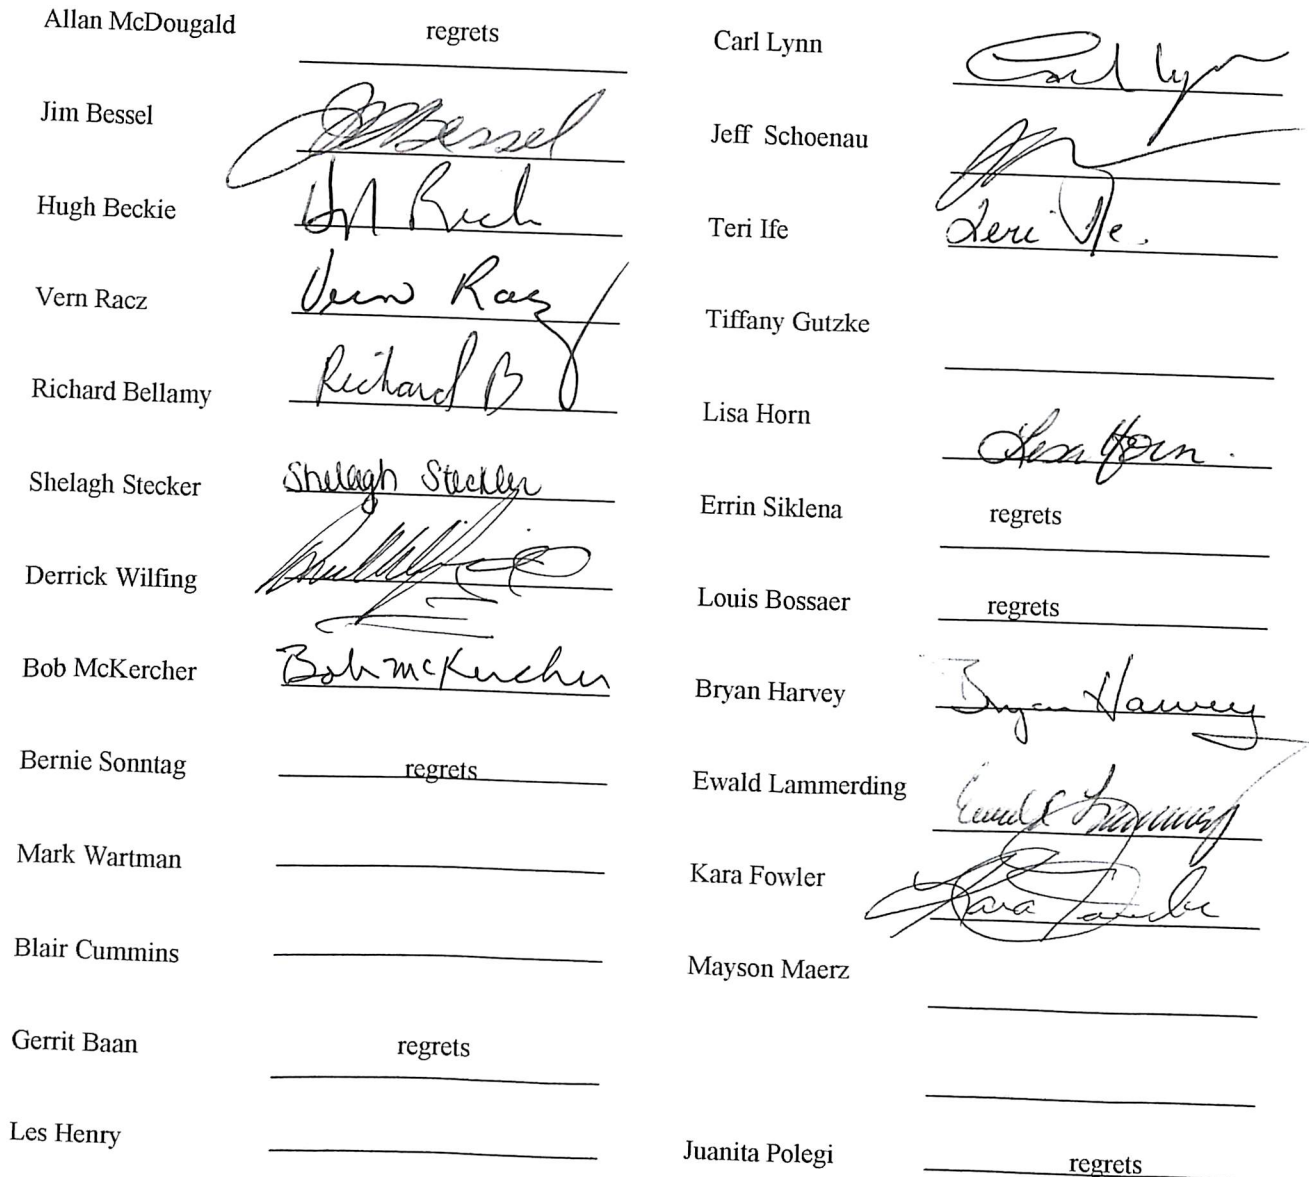 Allan McDougald regrets
Jim Bessel JM Bessel
Hugh Beckie
Vern Racz Vern Racz
Richard Bellamy Richard B
Shelagh Stecker Shelagh Steckler
Derrick Wilfing
Bob McKercher Bob McKercher
Bernie Sonntag regrets
Mark Wartman
Blair Cummins
Gerrit Baan regrets
Les Henry
Carl Lynn Carl Lynn
Jeff Schoenau
Teri Ife Teri Ife.
Tiffany Gutzke
Lisa Horn Lisa Horn.
Errin Siklena regrets
Louis Bossaer regrets
Bryan Harvey Bryan Harvey
Ewald Lammerding
Kara Fowler Kara Fowler
Mayson Maerz
Juanita Polegi regrets